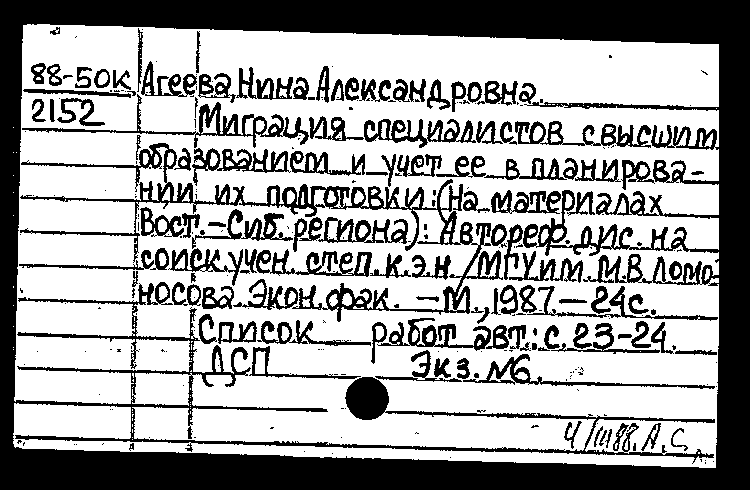 88-50к Агеева, Нина Александровна.
2152 Миграция специалистов с высшим
образованием и учет ее в планирова-
нии их подготовки: (На материалах
Вост.-Сиб. региона): Автореф. дис. на
соиск. учен. степ. к.э.н. /МГУ им. М.В. Ломо-
носова. Экон. фак. — М., 1987. — 24с.
Список работ авт.: с. 23-24.
ДСП Экз. №6.
4/III 88. А.С.